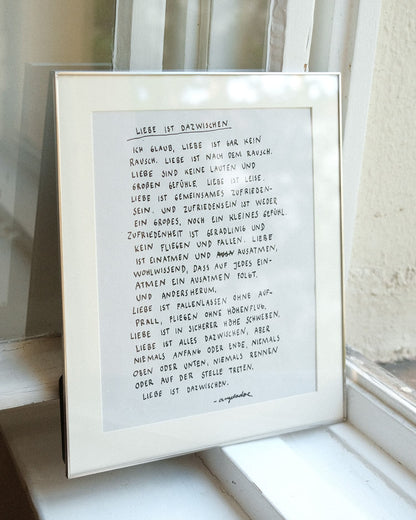 LIEBE IST DAZWISCHEN
ICH GLAUB, LIEBE IST GAR KEIN
RAUSCH. LIEBE IST NACH DEM RAUSCH.
LIEBE SIND KEINE LAUTEN UND
GROßEN GEFÜHLE. LIEBE IST LEISE.
LIEBE IST GEMEINSAMES ZUFRIEDEN-
SEIN. UND ZUFRIEDENSEIN IST WEDER
EIN GROßES, NOCH EIN KLEINES GEFÜHL.
ZUFRIEDENHEIT IST GERADLINIG UND
KEIN FLIEGEN UND FALLEN. LIEBE
IST EINATMEN UND AUSATMEN,
WOHLWISSEND, DASS AUF JEDES EIN-
ATMEN EIN AUSATMEN FOLGT.
UND ANDERSHERUM.
LIEBE IST FALLENLASSEN OHNE AUF-
PRALL, FLIEGEN OHNE HÖHENFLUG.
LIEBE IST IN SICHERER HÖHE SCHWEBEN.
LIEBE IST ALLES DAZWISCHEN, ABER
NIEMALS ANFANG ODER ENDE, NIEMALS
OBEN ODER UNTEN, NIEMALS RENNEN
ODER AUF DER STELLE TRETEN.
LIEBE IST DAZWISCHEN.